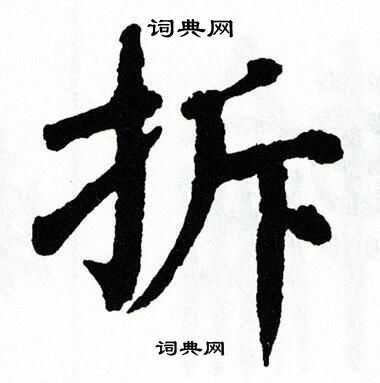 词典网
拆
词典网